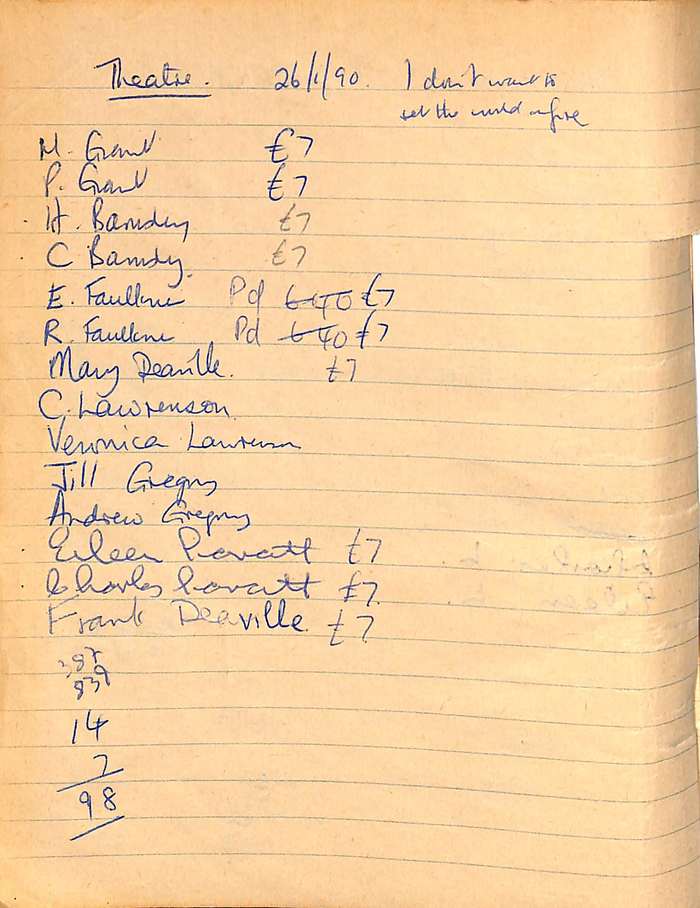 Theatre. 26/1/90. I don't want to
set the world on fire
M. Grant £7
P. Grant £7
H. Barnden £7
C Barnden £7
E. Faulkner Pd 6 40 £7
R. Faulkner Pd 6 40 £7
Mary Deaville. £7
C. Lawrenson
Veronica Lawrenson
Jill Gregory
Andrew Gregory
Eileen £7
Charles £7
Frank Deaville £7
14
7
98